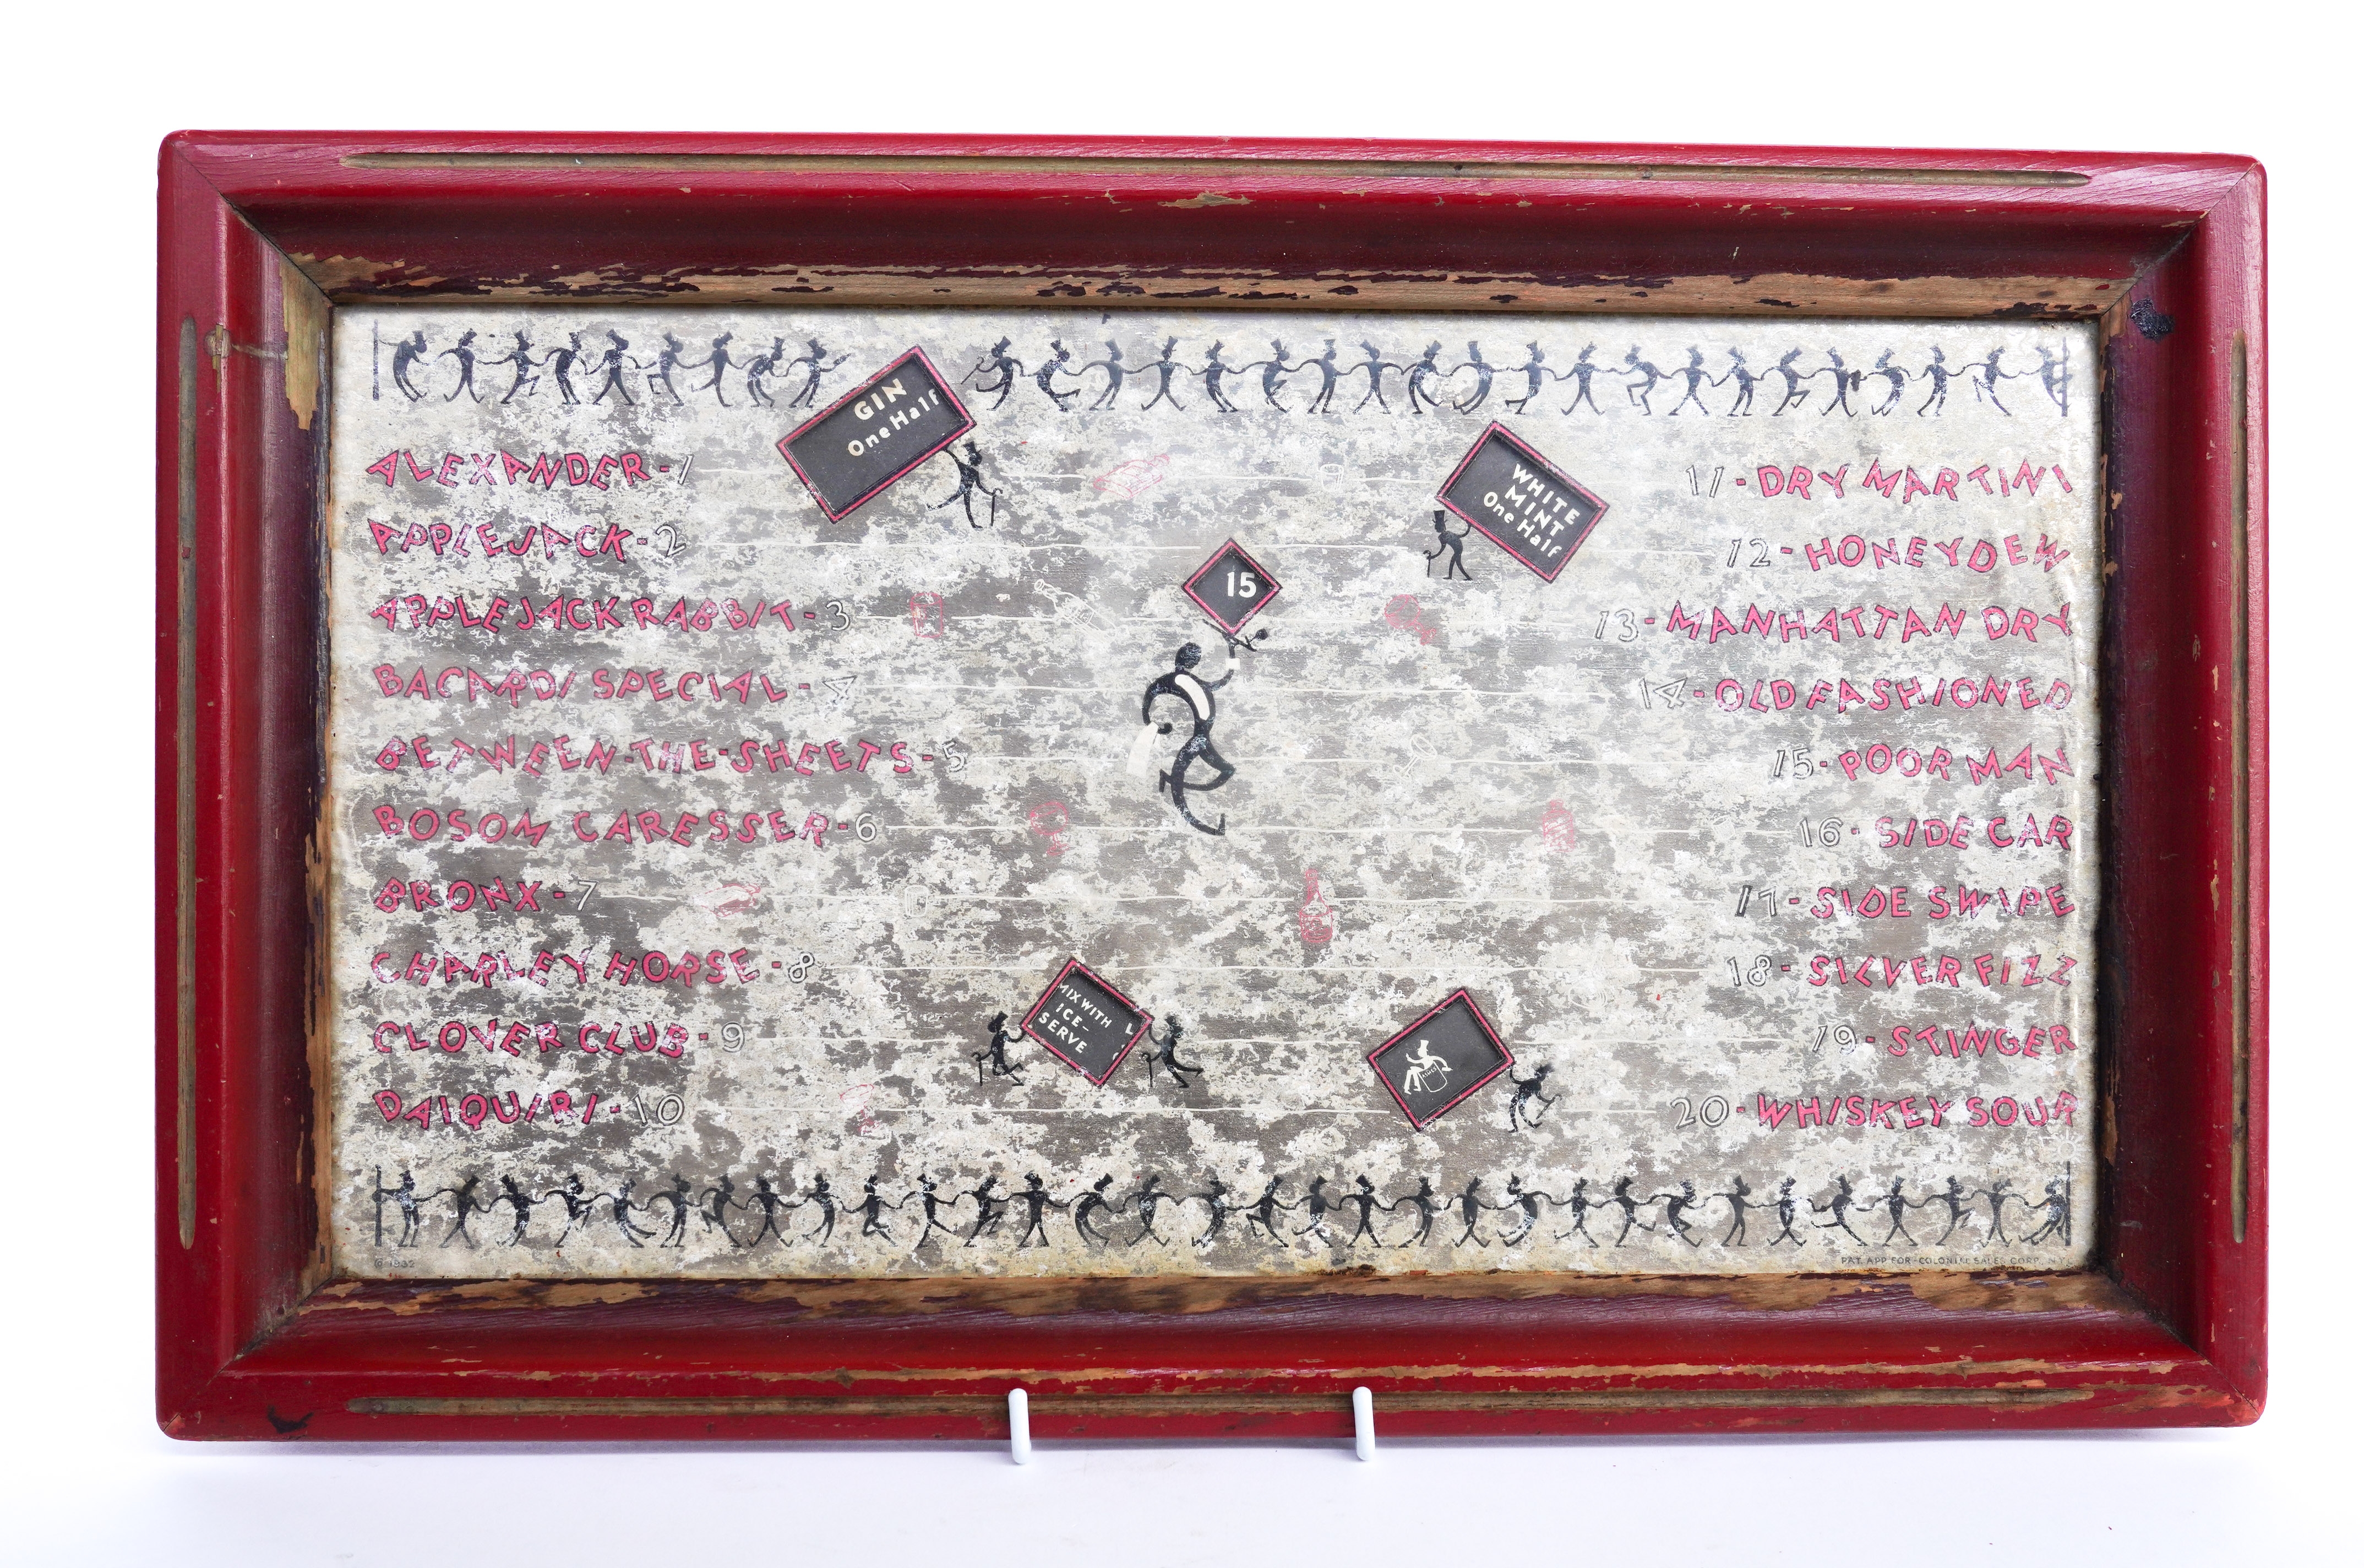 GIN
One Half
WHITE
MINT
One Half
15
MIX WITH
ICE-
SERVE
ALEXANDER-1
APPLEJACK-2
APPLEJACK RABBIT-3
BACARDI SPECIAL-4
BETWEEN-THE-SHEETS-5
BOSOM CARESSER-6
BRONX-7
CHARLEY HORSE-8
CLOVER CLUB-9
DAIQUIRI-10
11-DRY MARTINI
12-HONEYDEW
13-MANHATTAN DRY
14-OLD FASHIONED
15-POOR MAN
16-SIDE CAR
17-SIDE SWIPE
18-SILVER FIZZ
19-STINGER
20-WHISKEY SOUR
© 1932
PAT. APP. FOR-COLONIAL SALES CORP. N.Y.